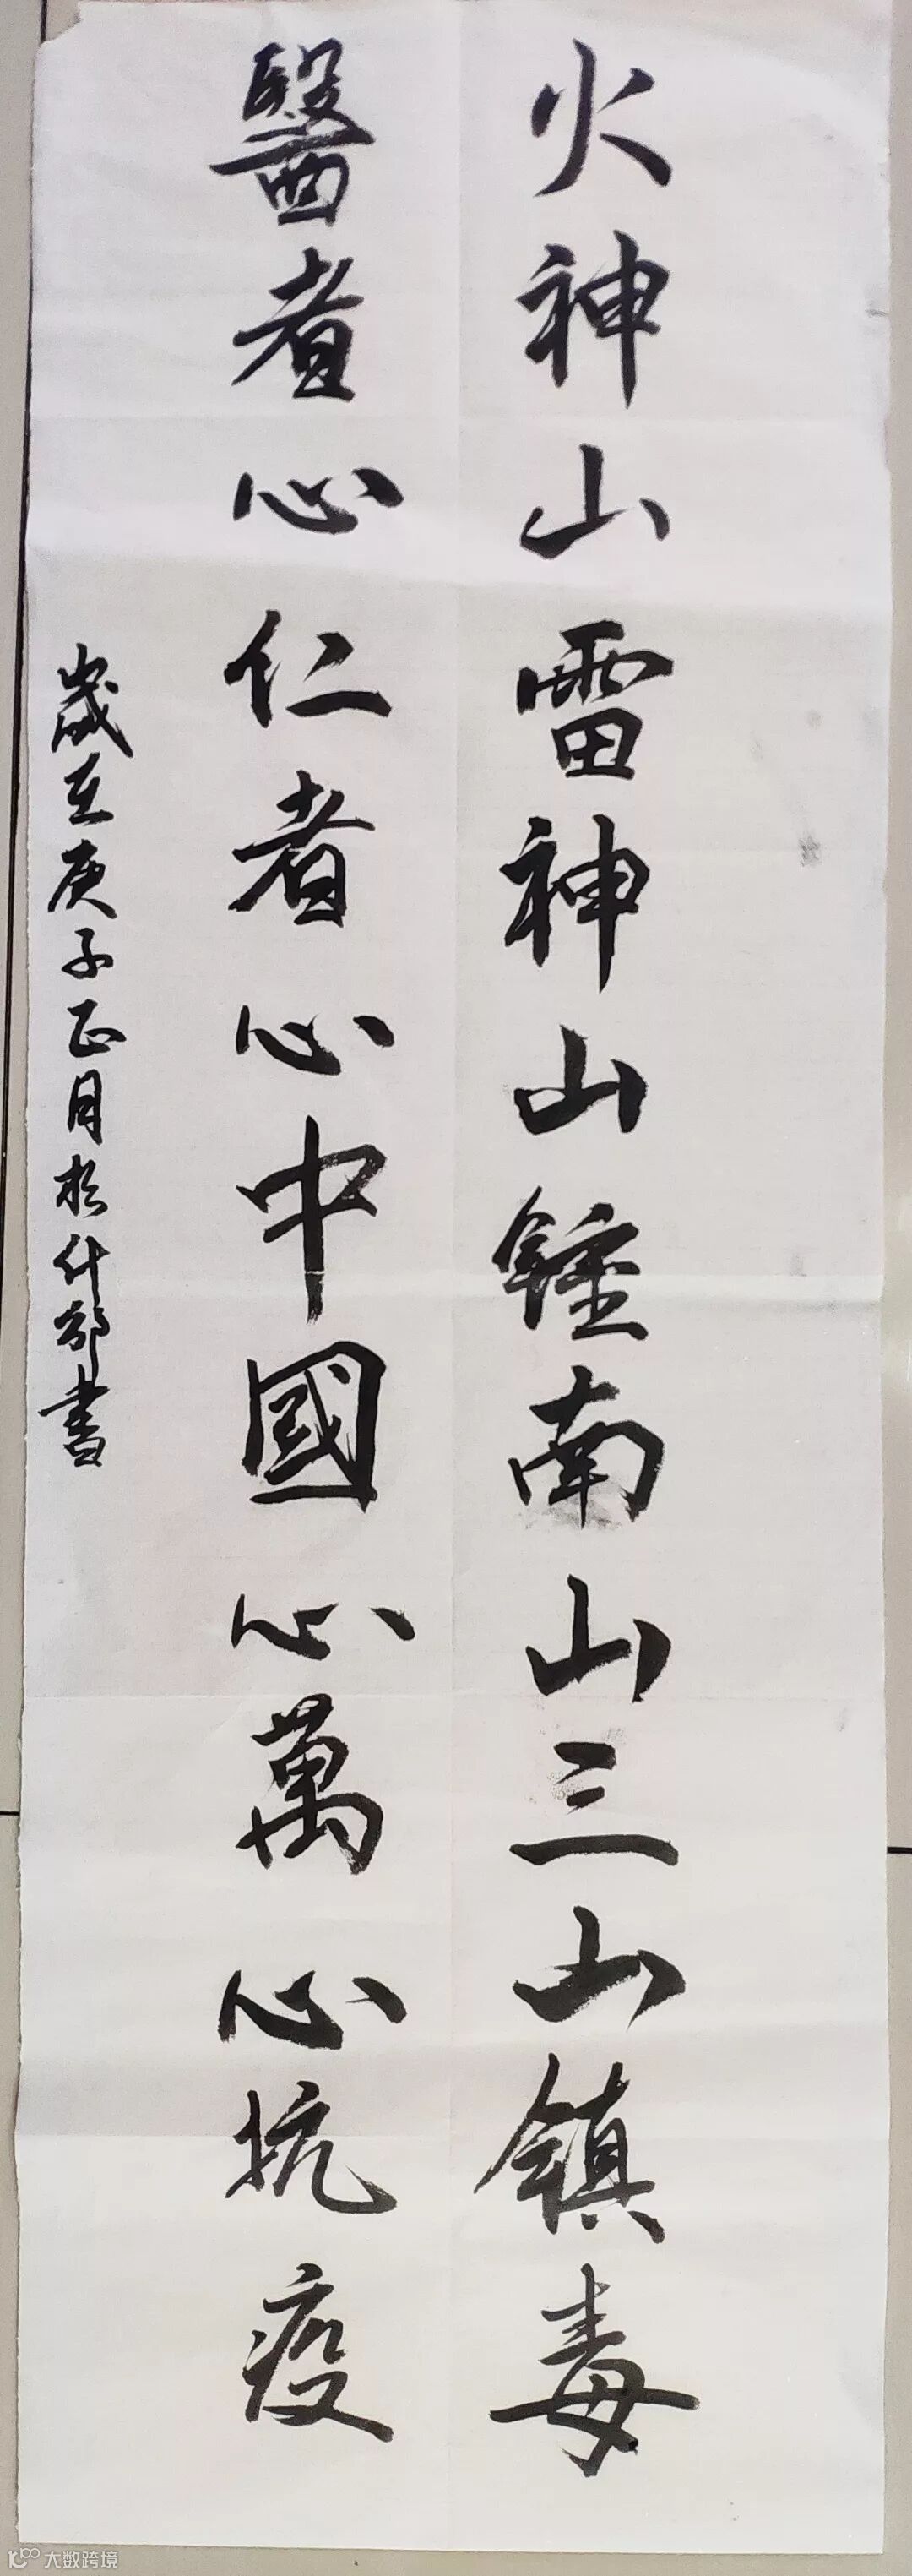 火神山雷神山鍾南山三山鎮毒
醫者心仁者心中國心萬心抗疫
歲在庚子正月於什邡書
大数跨境